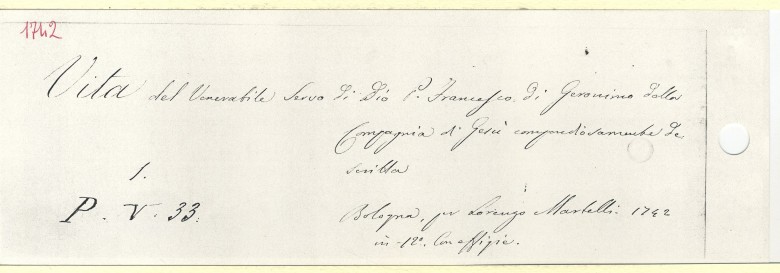 1742
Vita del Venerabile Servo di Dio P. Francesco di Geronimo della
Compagnia di Gesù compendiosamente de
scritta
1.
P. V. 33.
Bologna, per Lorenzo Martelli. 1742
in-12º. Con effigie.